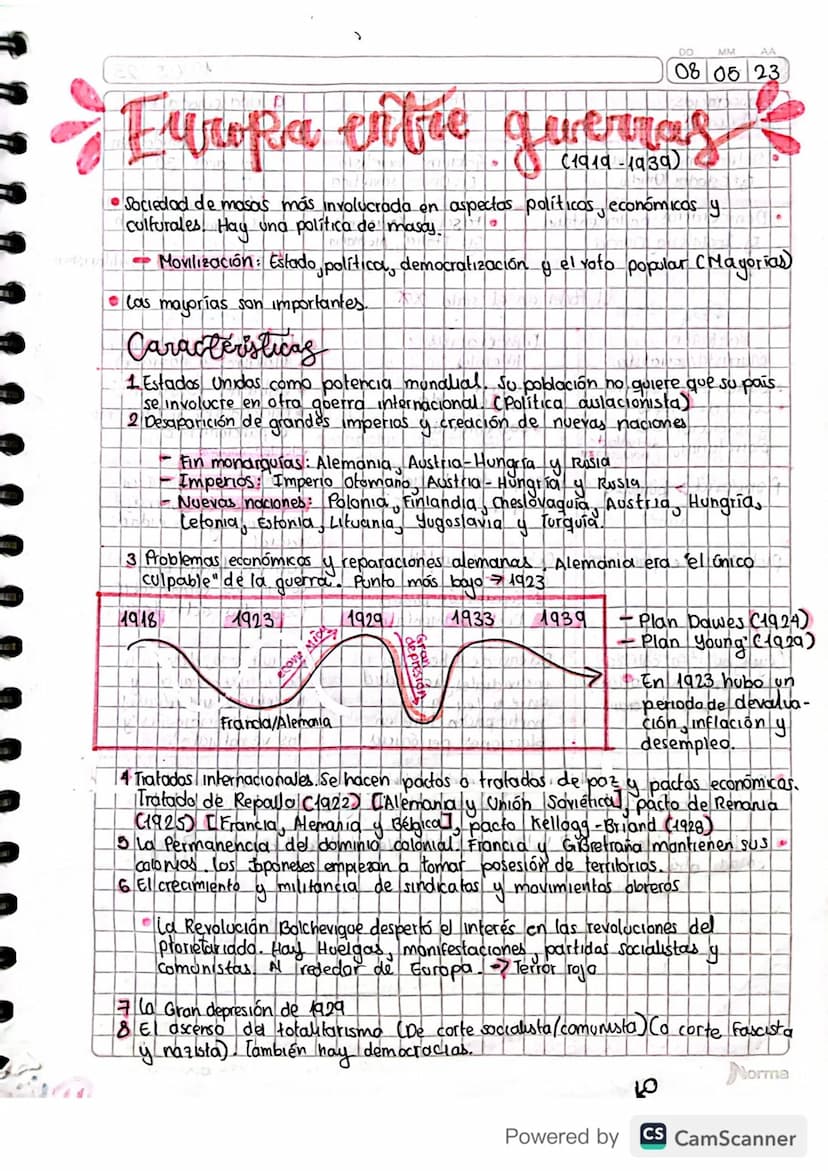 DD MM AA
08 05 23
Europa entre guerras
(1919-1939)
• Sociedad de masas más involucrada en aspectos políticos, económicos y
culturales. Hay una política de masas.
- Movilización: Estado, política, democratización y el voto popular (Mayorías)
• Las mayorías son importantes.
Características
1 Estados Unidos como potencia mundial. Su población no quiere que su país
se involucre en otra guerra internacional. (Política aislacionista)
2 Desaparición de grandes imperios y creación de nuevas naciones
- Fin monarquías: Alemania, Austria-Hungría y Rusia
- Imperios: Imperio Otomano, Austria-Hungría y Russia
- Nuevas naciones: Polonia, Finlandia, Cheslovaquia, Austria, Hungría,
Letonia, Estonia, Lituania, Yugoslavia y Turquía.
3 Problemas económicos y reparaciones alemanas, Alemania era "el único
culpable" de la guerra. Punto más bajo → 1923
1918 1923 1929 1933 1939
Gran
depresión
Francia/Alemania
- Plan Dawes (1924)
- Plan Young (1929)
• En 1923 hubo un
periodo de devalua-
ción, inflación y
desempleo.
4 Tratados internacionales. Se hacen pactos o tratados de paz y pactos económicos.
Tratado de Repallo (1922) [Alemania y Unión Soviética], pacto de Renania
(1925) [Francia, Alemania y Bélgica], pacto Kellogg-Briand (1928)
5 La Permanencia del dominio colonial. Francia y GBretraña mantienen sus
colonias. Los Japoneses empiezan a tomar posesión de territorios.
6 El crecimiento y militancia de sindicatos y movimientos obreros
• La Revolución Bolchevique despertó el interés en las revoluciones del
prorietariado. Hay Huelgas, manifestaciones, partidos socialistas y
comunistas. Al rededor de Europa. → Terror rojo
7 La Gran depresión de 1929
8 El ascenso del totalitarismo (De corte socialista/comunista) (o corte Fascista
y nazista). También hay democracias.
Norma
Powered by CS CamScanner